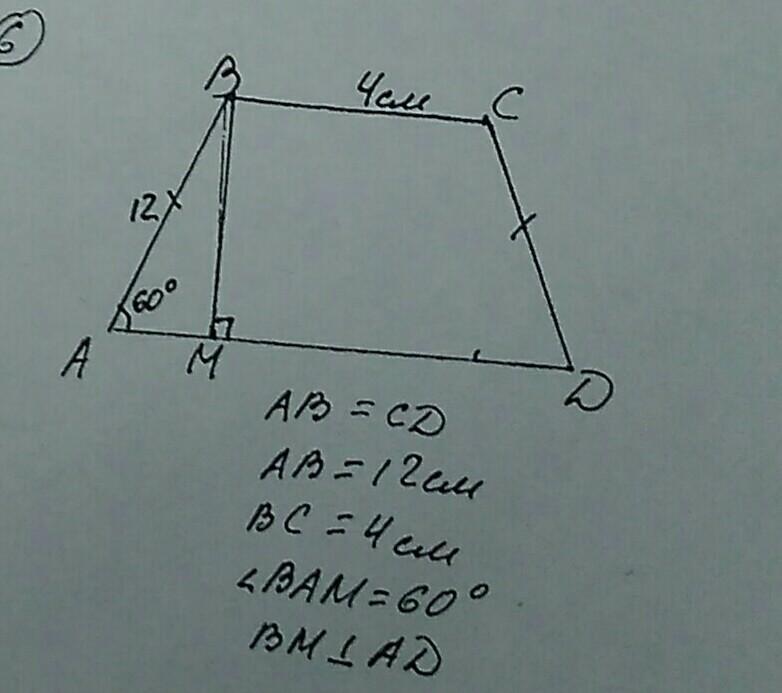 6
B
4см
C
12
60°
A
M
D
AB = CD
AB = 12см
BC = 4см
∠BAM = 60°
BM ⊥ AD